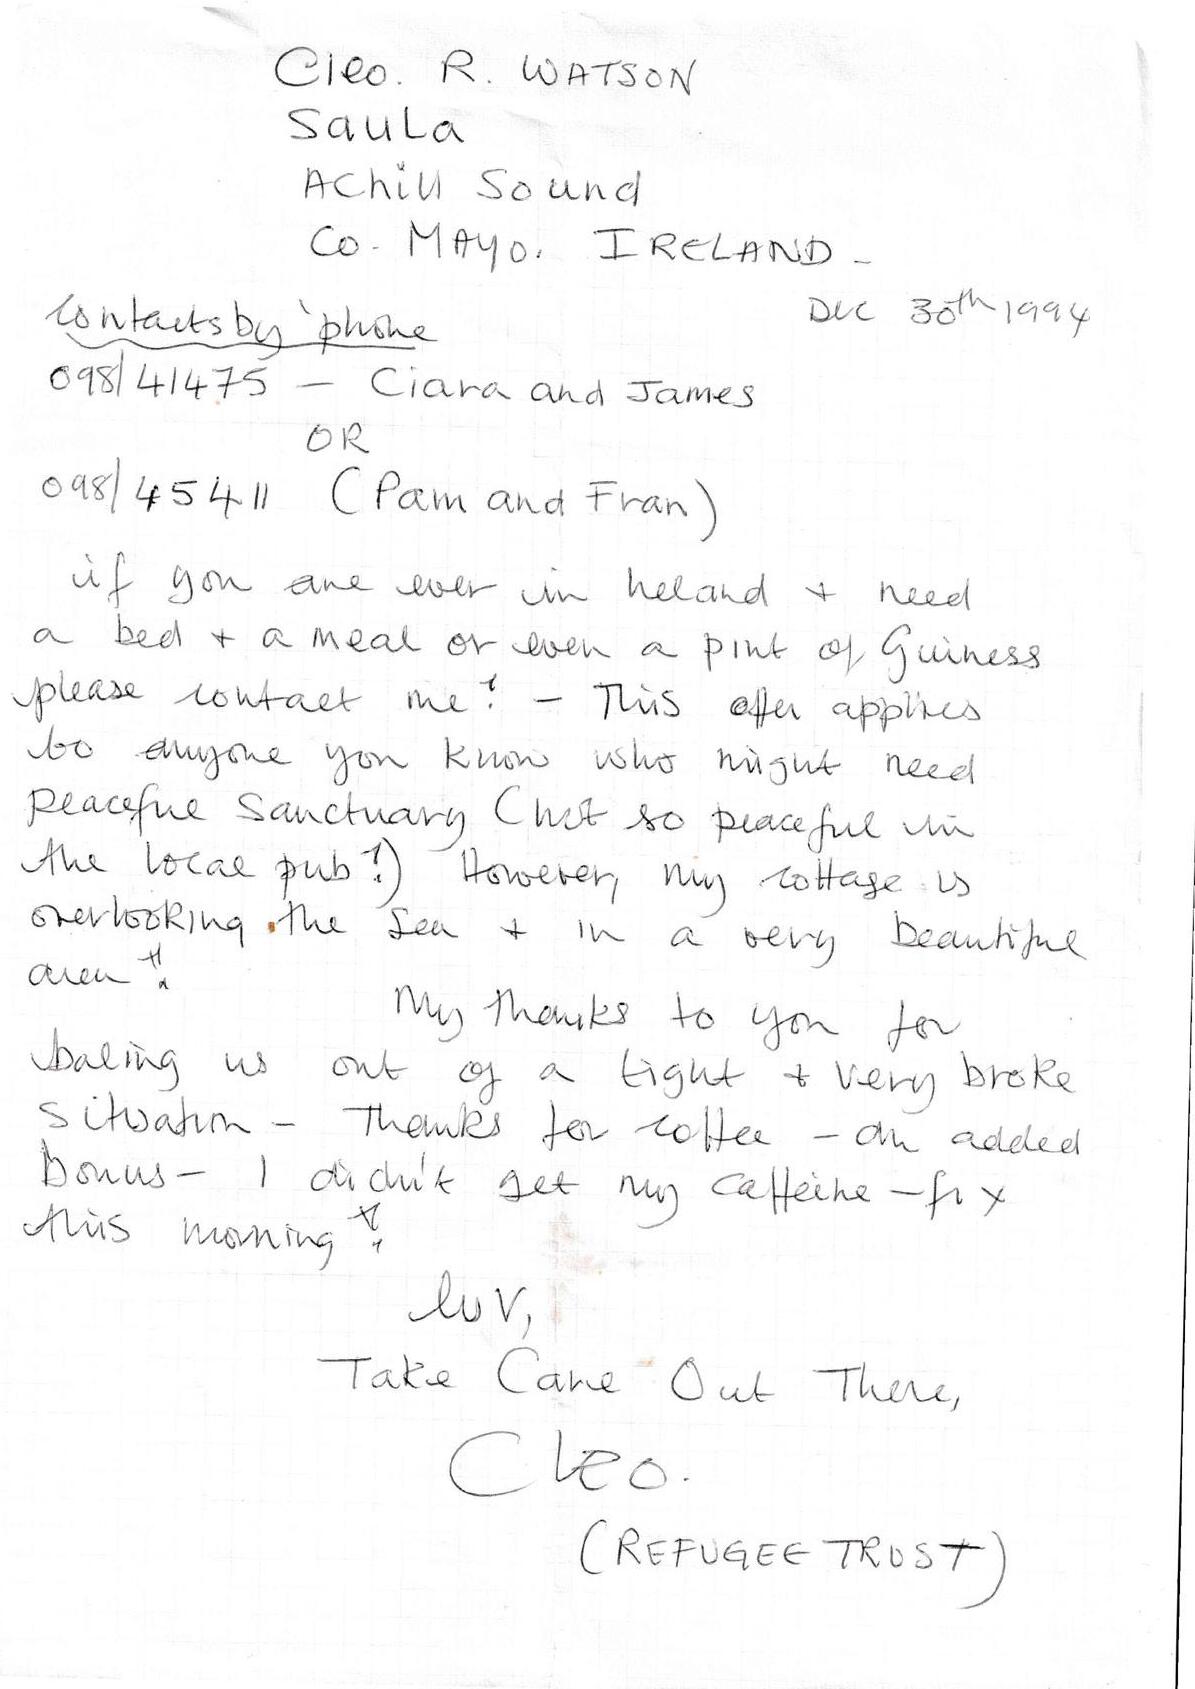 Cleo. R. WATSON
Saula
Achill Sound
Co. MAYO. IRELAND -
DEC 30th 1994
Contacts by 'phone
098/41475 — Ciara and James
OR
098/45411 (Pam and Fran)
if you are ever in Ireland + need
a bed + a meal or even a pint of Guiness
please contact me! - This offer applies
to anyone you know who might need
Peaceful Sanctuary (Not so peaceful in
the local pub!) However, my cottage is
overlooking the Sea + in a very beautiful
area!
My thanks to you for
baling us out of a tight + very broke
situation - Thanks for coffee - an added
bonus - I didn't get my caffeine - fix
this morning!
luv,
Take Care Out There,
Cleo.
(REFUGEE TRUST)